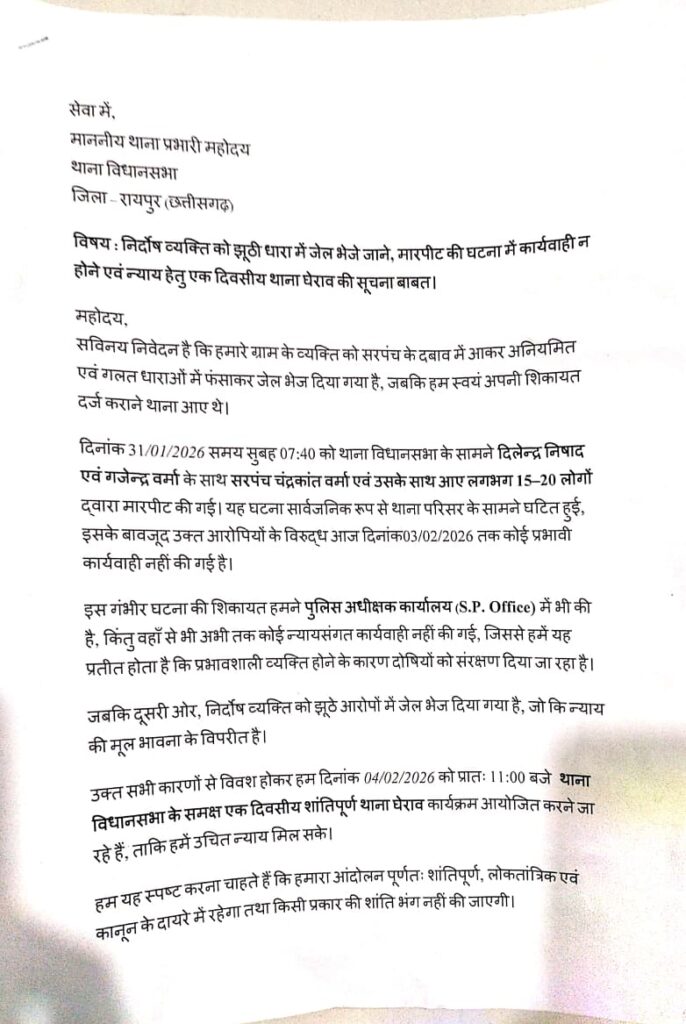 सेवा में,
माननीय थाना प्रभारी महोदय
थाना विधानसभा
जिला – रायपुर (छत्तीसगढ़)
विषय : निर्दोष व्यक्ति को झूठी धारा में जेल भेजे जाने, मारपीट की घटना में कार्यवाही न
होने एवं न्याय हेतु एक दिवसीय थाना घेराव की सूचना बाबत।
महोदय,
सविनय निवेदन है कि हमारे ग्राम के व्यक्ति को सरपंच के दबाव में आकर अनियमित
एवं गलत धाराओं में फंसाकर जेल भेज दिया गया है, जबकि हम स्वयं अपनी शिकायत
दर्ज कराने थाना आए थे।
दिनांक 31/01/2026 समय सुबह 07:40 को थाना विधानसभा के सामने दिलेन्द्र निषाद
एवं गजेन्द्र वर्मा के साथ सरपंच चंद्रकांत वर्मा एवं उसके साथ आए लगभग 15–20 लोगों
द्वारा मारपीट की गई। यह घटना सार्वजनिक रूप से थाना परिसर के सामने घटित हुई,
इसके बावजूद उक्त आरोपियों के विरुद्ध आज दिनांक03/02/2026 तक कोई प्रभावी
कार्यवाही नहीं की गई है।
इस गंभीर घटना की शिकायत हमने पुलिस अधीक्षक कार्यालय (S.P. Office) में भी की
है, किंतु वहाँ से भी अभी तक कोई न्यायसंगत कार्यवाही नहीं की गई, जिससे हमें यह
प्रतीत होता है कि प्रभावशाली व्यक्ति होने के कारण दोषियों को संरक्षण दिया जा रहा है।
जबकि दूसरी ओर, निर्दोष व्यक्ति को झूठे आरोपों में जेल भेज दिया गया है, जो कि न्याय
की मूल भावना के विपरीत है।
उक्त सभी कारणों से विवश होकर हम दिनांक 04/02/2026 को प्रातः 11:00 बजे थाना
विधानसभा के समक्ष एक दिवसीय शांतिपूर्ण थाना घेराव कार्यक्रम आयोजित करने जा
रहे हैं, ताकि हमें उचित न्याय मिल सके।
हम यह स्पष्ट करना चाहते हैं कि हमारा आंदोलन पूर्णतः शांतिपूर्ण, लोकतांत्रिक एवं
कानून के दायरे में रहेगा तथा किसी प्रकार की शांति भंग नहीं की जाएगी।